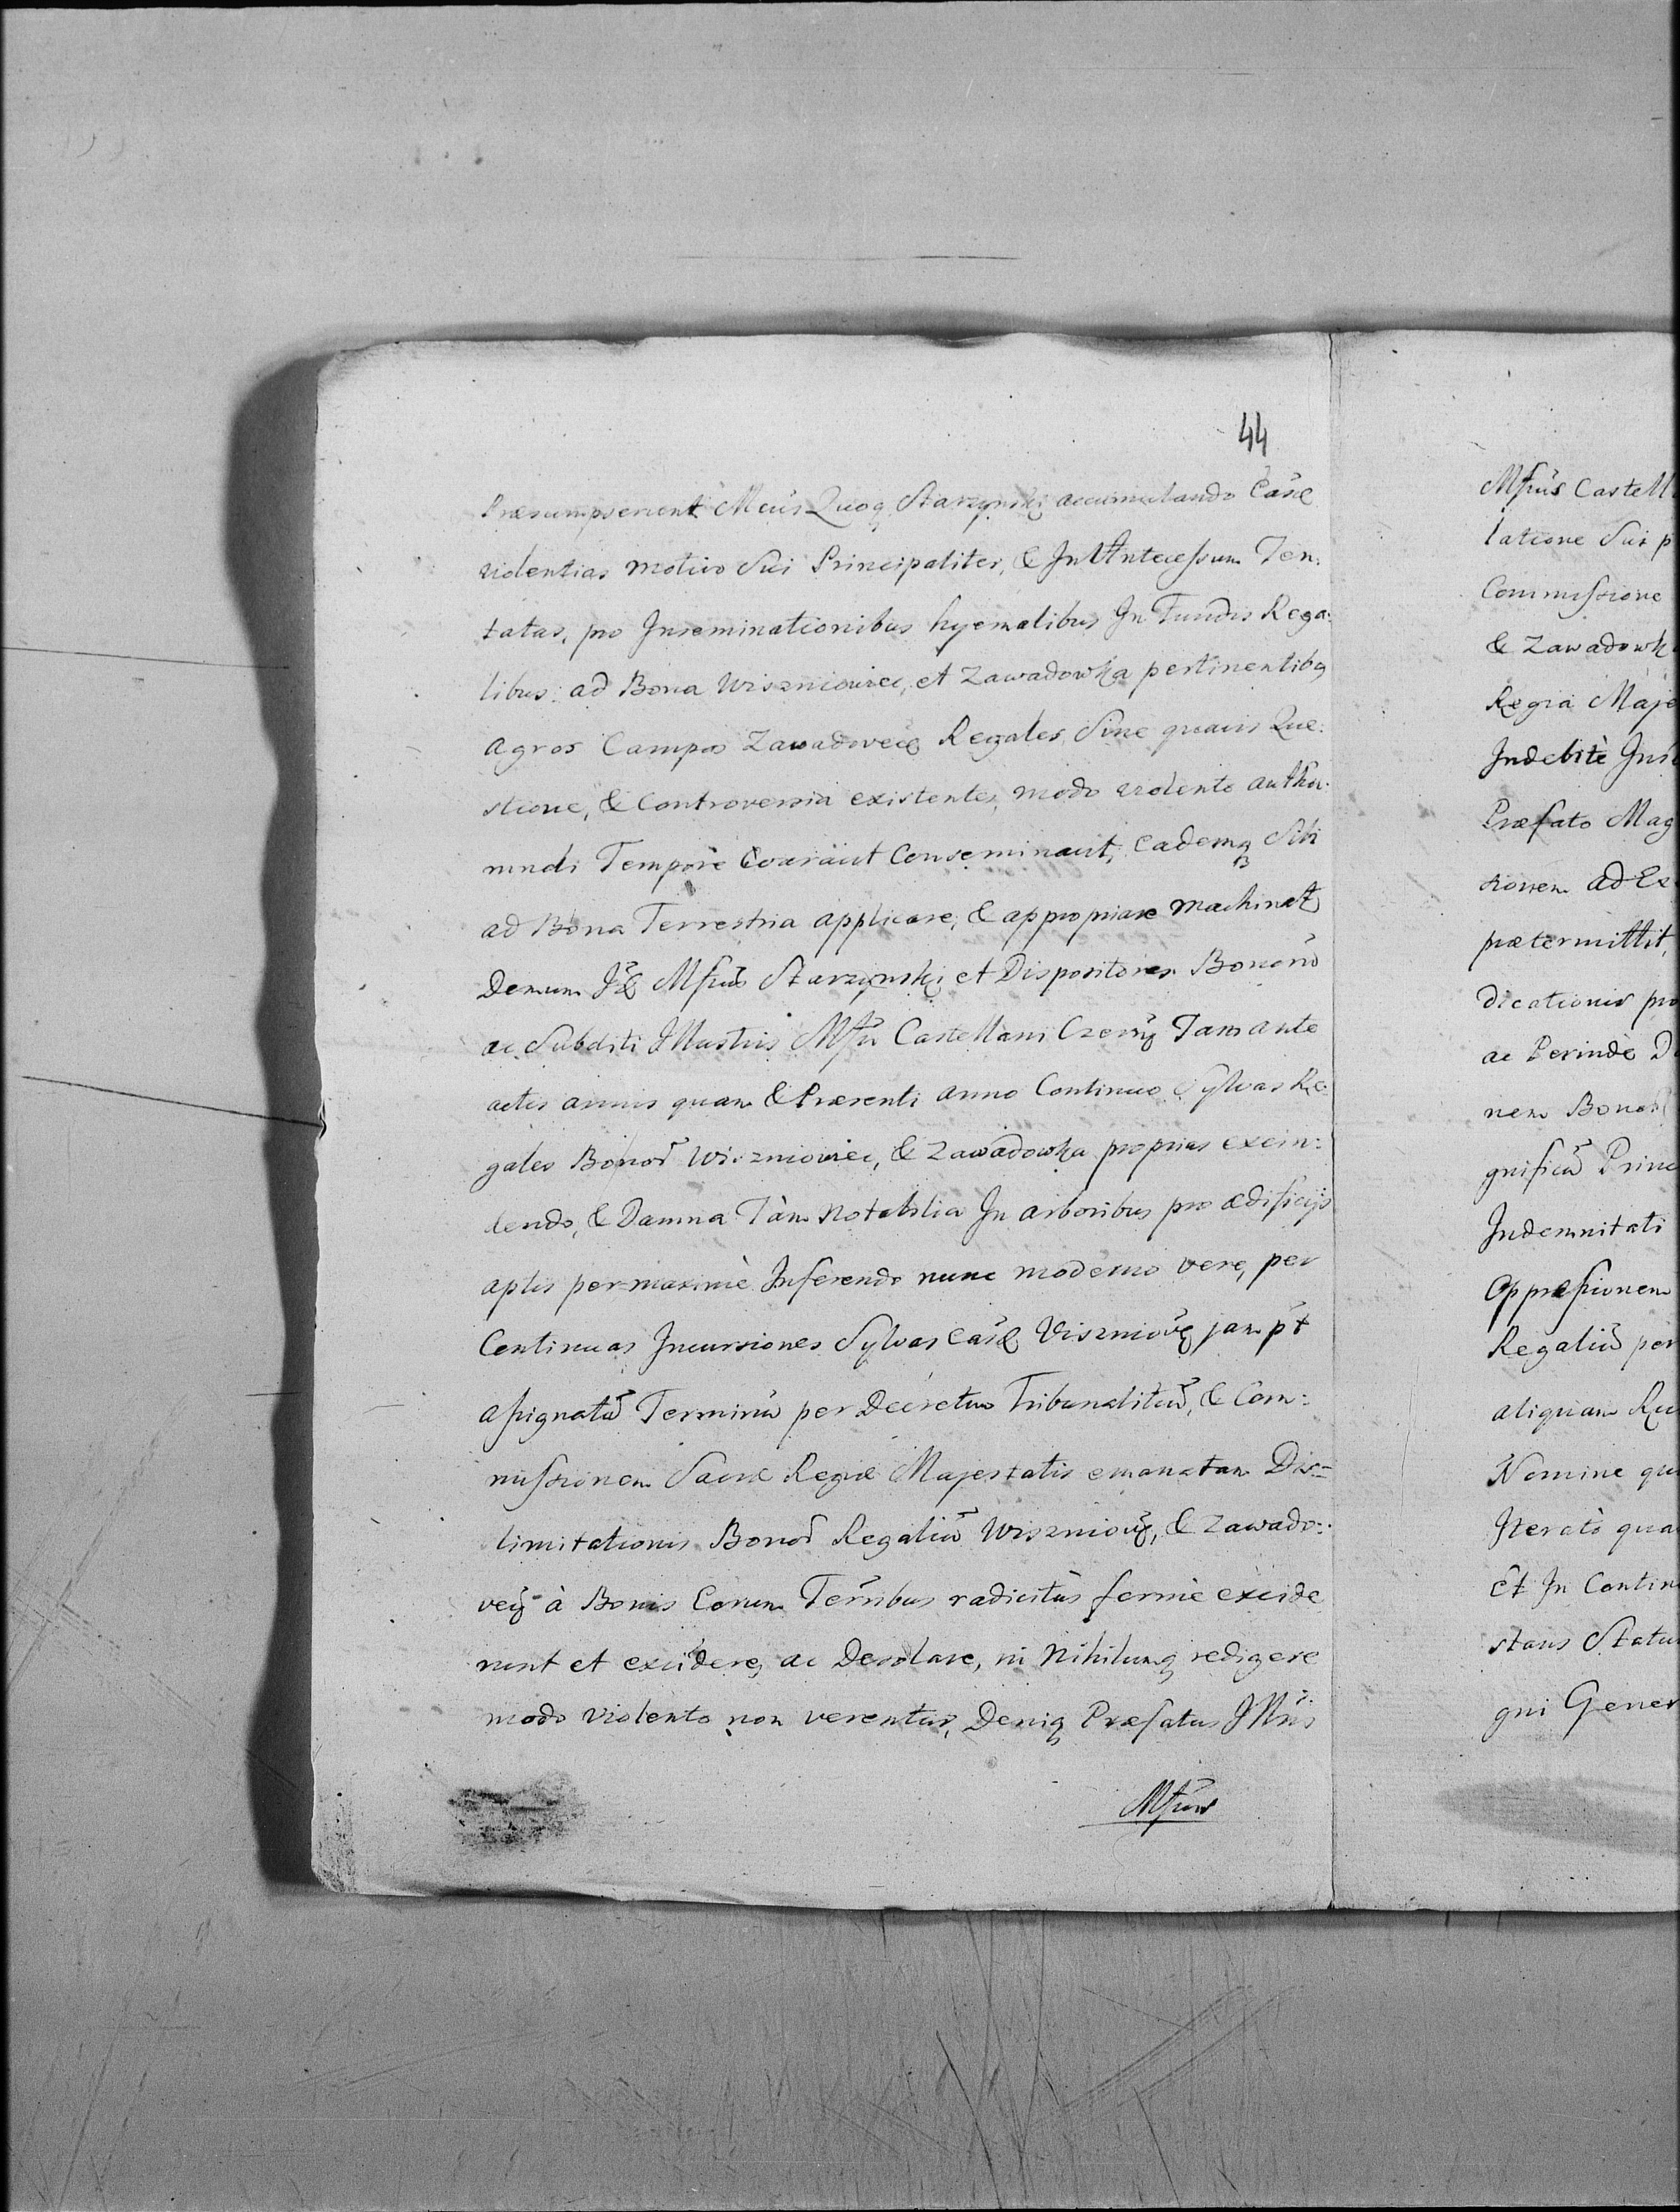 44
Præsumpserunt Mcus Quoq Starzynski accumulando Casæ
violentias motivo Sui Principaliter, & In Antecessum Ten:
tatas, pro Inseminationibus hyemalibus In Fundis Rega:
libus ad Bona Wiszniowiec, et Zawadowka pertinentibq
agros Campos Zawadovec Regales Sine quavis Quæ:
stione, & Controversia existentes, modo violento authu:
mnali Tempore Conseminavit, Eademq Sibi
ad Bona Terrestria applicare, & appropriare machinat
Demum Mfcus Starzynski et Dispositores Bonorum
ac Subditi Illustris Mfci Castellani Czerny Tam ante
actis annis quam & Præsenti anno Continuo Sylvas Re:
gales Bonor Wiszniowiec, & Zawadowka proprias excin:
dendo, & Damna Tàm Notabilia In arboribus pro ædificijs
aptis per-maximè Inferendo nunc moderno vere, per
Continuas Incursiones Sylvas easdē Viszniovę jam pt
assignatū Terminū per Decretum Tribunalitiū, & Com:
missionem Sacræ Regiæ Majestatis emanatam Dis=
limitationis Bonor Regaliū Wisznioв, & Zawado:
vecɉ à Bonis Eorum Terribus radicitùs fermè excide
runt et excidere, ac Desolare, in Nihilumq redigere
modo violento non verentur, Deniq Præfatus Illris
Mfcus
Mfcus Castell
latione Sui p
Commissione
& Zawadowk
Regia Maje
Indebitè
Præfato Mag
sionem ad Ex
prætermittit,
dicationis pro
ac Perinde D
nem Bonor
gnificū Princ
Indemnitati
Oppressionem
Regaliū per
aliquam
Nomine qu
Iteratò qua
Et In Contin
stans Statu
gni Gener